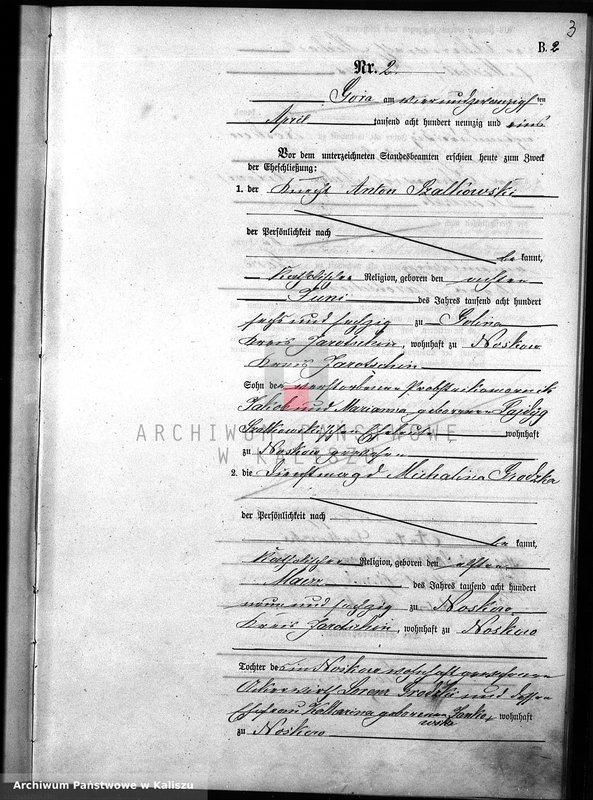 3
B. 2
Nr. 2.
Gora am vier und zwanzigsten
April tausend acht hundert neunzig und eins
Vor dem unterzeichneten Standesbeamten erschien heute zum Zweck
der Eheschließung:
1. der Knecht Anton Szatkowski
der Persönlichkeit nach
be kannt,
katholischer Religion, geboren den achten
Juni des Jahres tausend acht hundert
sechs und sechzig zu Golina
Kreis Jarotschin, wohnhaft zu Noskow
Kreis Jarotschin
Sohn der verstorbenen
Jakob und Marianna geborenen
Szatkowskischen Eheleute wohnhaft
zu Noskow gewesen
2. die Dienstmagd Michalina Grodzka
der Persönlichkeit nach
be kannt,
katholischer Religion, geboren den elften
März des Jahres tausend acht hundert
neun und sechzig zu Noskow
Kreis Jarotschin, wohnhaft zu Noskow
Tochter des in Noskow wohnhaft gewesenen
Ackerwirth Lorenz Grodzki und dessen
Ehefrau Katharina geborenen Janko
wska wohnhaft
zu Noskow
ARCHIWUM PAŃSTWOWE
W KALISZU
Archiwum Państwowe w Kaliszu